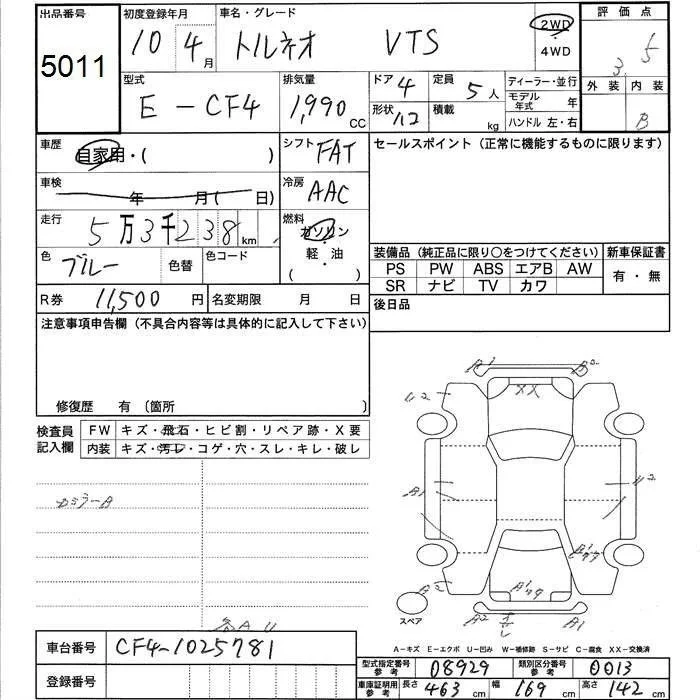 出品番号 5011
初度登録年月 10 4月
車名・グレード トルネオ VTS
2WD
4WD
評価点
3 5
外装 内装
B
型式 E-CF4
排気量 1,990 CC
ドア 4 定員 5人
形状 積載 kg
ディーラー・並行
モデル年式 年
ハンドル 左・右
車歴 自家用・( )
シフト FAT
セールスポイント(正常に機能するものに限ります)
車検 年 月( 日)
冷房 AAC
走行 5万3千238km
燃料 ガソリン
軽・油
( )
色 ブルー 色替 色コード
装備品(純正品に限り〇をつけてください) 新車保証書
PS PW ABS エアB AW 有・無
SR ナビ TV カワ
R券 11,500円 名変期限 月 日
後日品
注意事項申告欄(不具合内容等は具体的に記入して下さい)
修復歴 有 〔箇所 〕
検査員記入欄
FW キズ・飛石・ヒビ割・リペア跡・X要
内装 キズ・汚レ・コゲ・穴・スレ・キレ・破レ
A1
XX
A1
A2 A1
スペア
A-キズ E-エクボ U-凹み W-補修跡 S-サビ C-腐食 XX-交換済
車台番号 CF4-1025781
登録番号
型式指定番号参考 08929 類別区分番号参考 0013
車庫証明用参考 長さ 463cm 幅 169cm 高さ 142cm